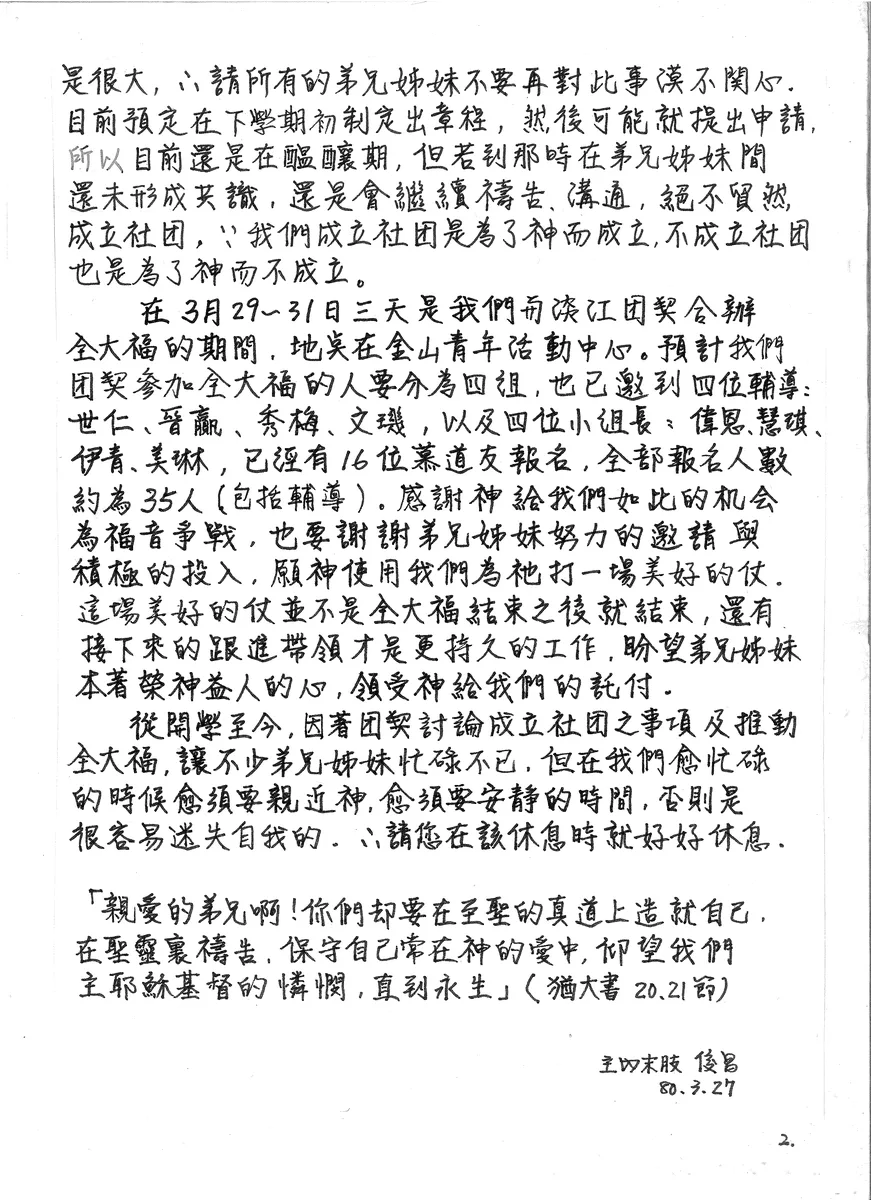 是很大, ∴請所有的弟兄姊妹不要再對此事漠不関心.
目前預定在下學期初制定出章程, 然後可能就提出申請,
所以目前還是在醞釀期, 但若到那時在弟兄姊妹間
還未形成共識, 還是會繼續禱告、溝通, 絕不貿然
成立社团, ∵我們成立社团是為了神而成立,不成立社团
也是為了神而不成立。
在3月29~31日三天是我們与淡江团契合辦
全大福的期間, 地奌在金山青年活動中心。預計我們
团契參加全大福的人要分為四組, 也已邀到四位輔導:
世仁、晉贏、秀梅、文璣, 以及四位小組長: 偉恩、慧琪、
伊青、美琳, 已經有16位慕道友報名, 全部報名人數
約為35人(包括輔導)。感謝神給我們如此的机会
為福音爭戰, 也要謝謝弟兄姊妹努力的邀請與
積極的投入, 願神使用我們為祂打一場美好的仗.
這場美好的仗並不是全大福結束之後就結束, 還有
接下來的跟進帶領才是更持久的工作, 盼望弟兄姊妹
本著榮神益人的心, 領受神給我們的託付.
從開學至今, 因著团契討論成立社团之事項及推動
全大福, 讓不少弟兄姊妹忙碌不已, 但在我們愈忙碌
的時候愈須要親近神, 愈須要安靜的時間, 否則是
很容易迷失自我的. ∴請您在該休息時就好好休息.
「親愛的弟兄啊!你們却要在至聖的真道上造就自己,
在聖靈裏禱告, 保守自己常在神的愛中, 仰望我們
主耶穌基督的憐憫, 直到永生」(猶大書 20.21節)
主內末肢 俊昌
80.3.27
2.